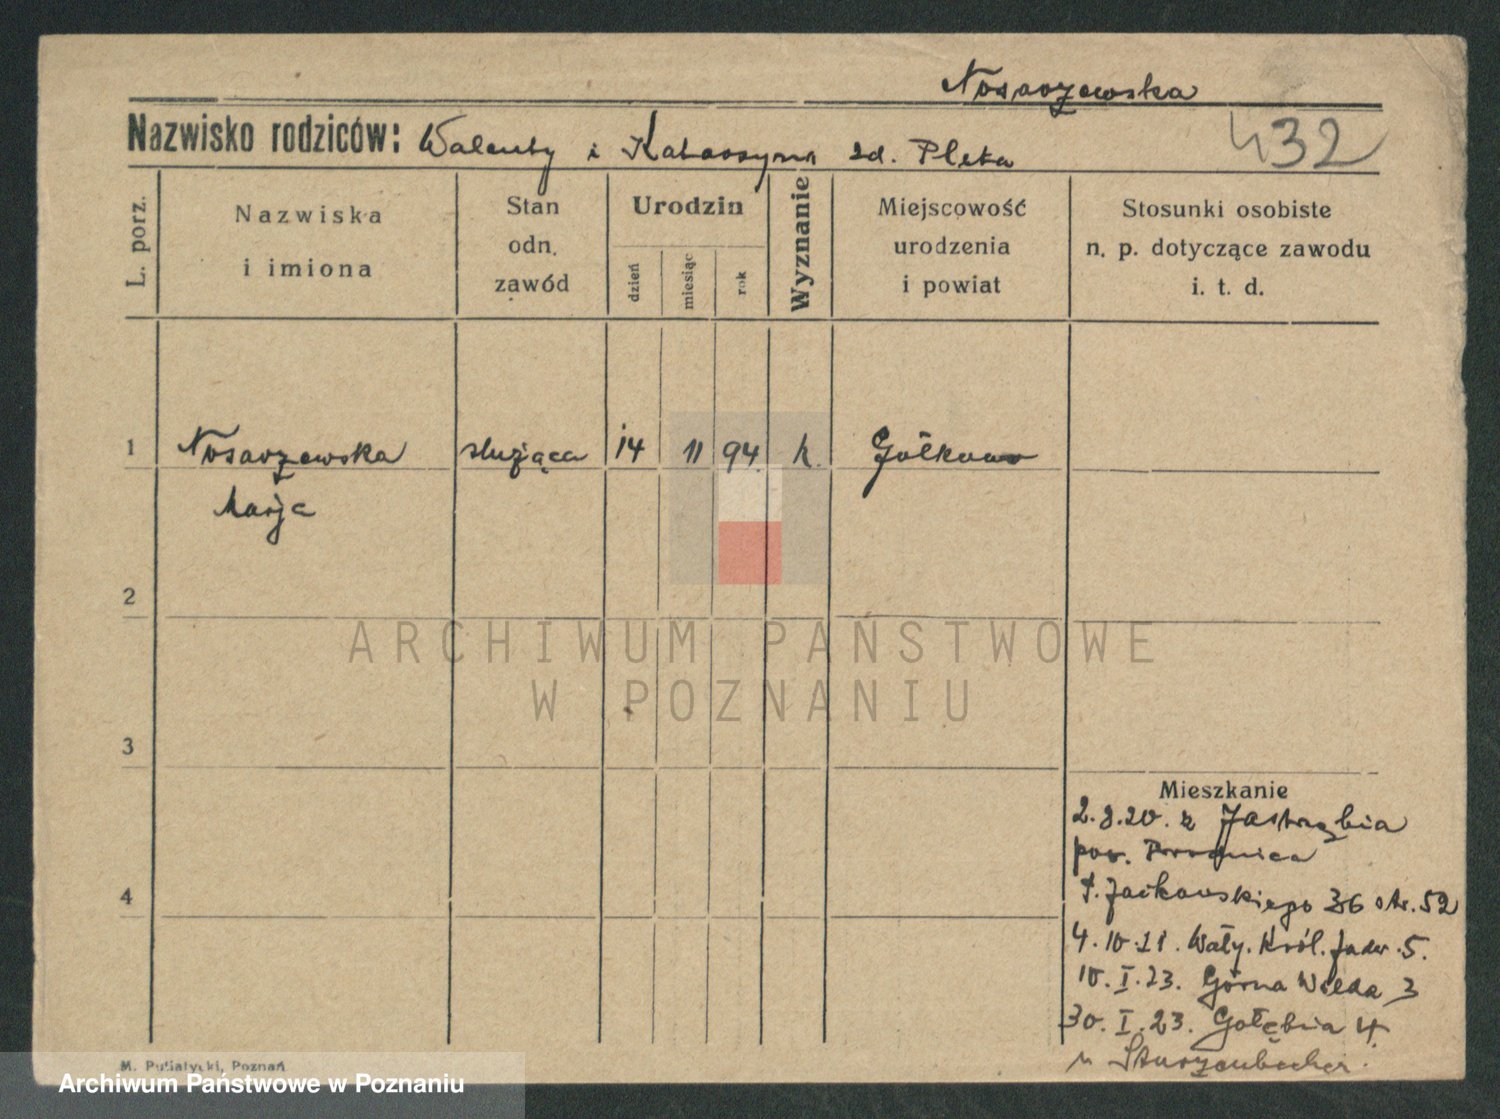 Nosarzewska
432
Nazwisko rodziców: Walenty i Katarzyna zd. Pleta
L. porz.
Nazwiska
i imiona
Stan
odn.
zawód
Urodzin
dzień
miesiąc
rok
Wyznanie
Miejscowość
urodzenia
i powiat
Stosunki osobiste
n. p. dotyczące zawodu
i. t. d.
1 Nosarzewska służąca 14 11 94 k. Gółkowo
Marja
2
ARCHIWUM PAŃSTWOWE
W POZNANIU
3
Mieszkanie
2.8.20. z Jastrzębia
pow. Brodnica
Jackowskiego 36 str. 52
4
4.10.21. Wały. Król. Jadw. 5.
10.I.23. Górna Wilda 3
30.I.23. Gołębia 4.
u Sturzenbecher.
M. Putiatycki, Poznań
Archiwum Państwowe w Poznaniu